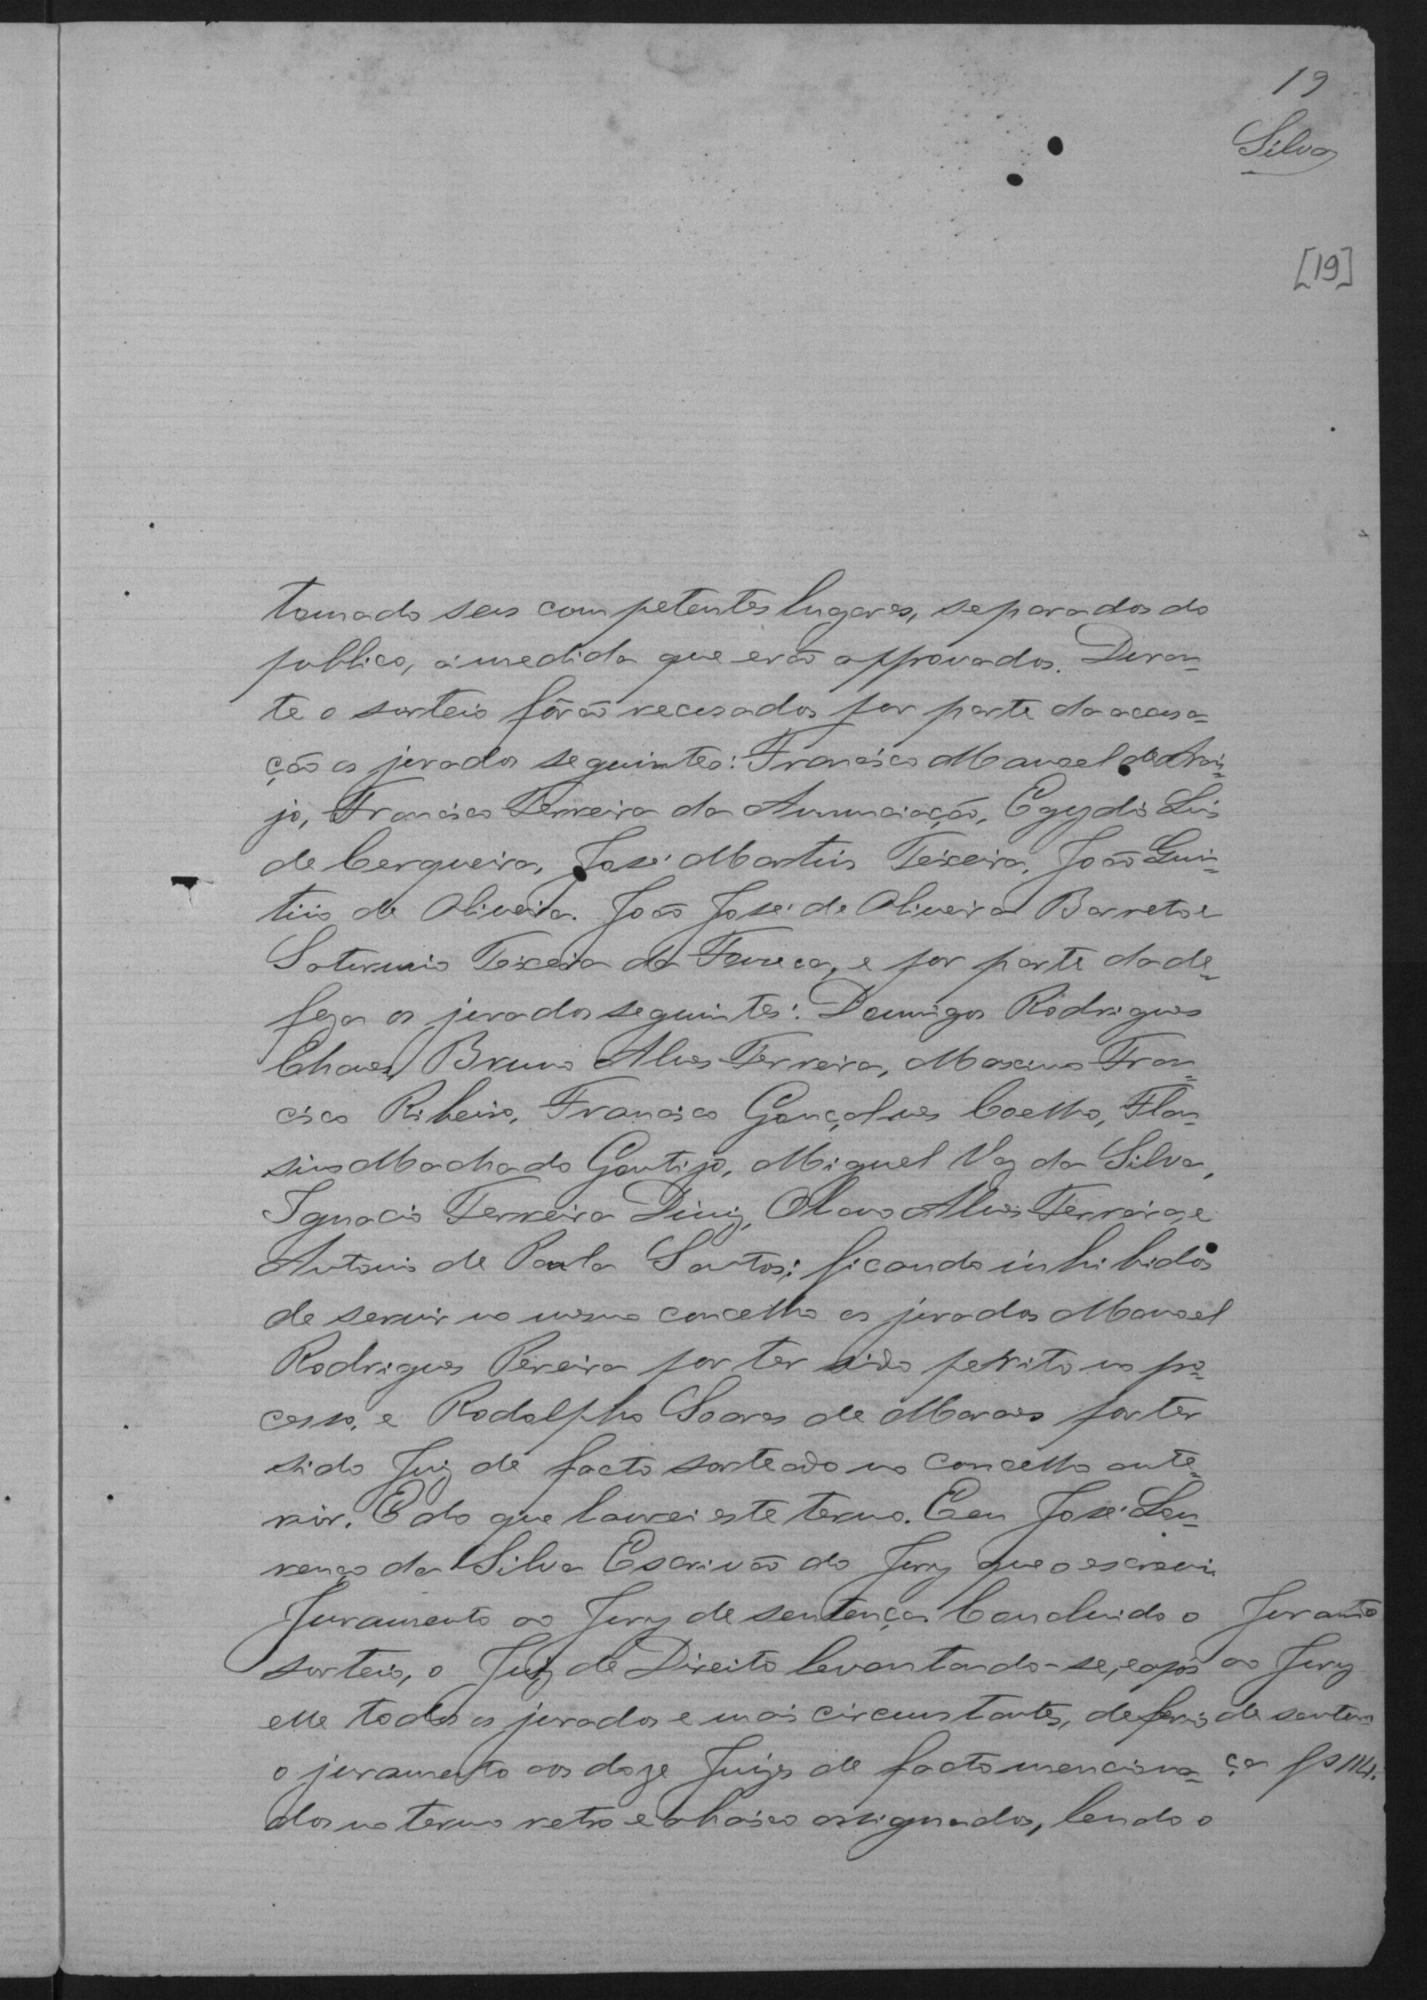 19
Silva
[19]
tomado seus competentes lugares, separados do
publico, á medida que erão approvados. Duran-
te o sorteio fôrão recusados por parte da accusa-
ção os jurados seguintes: Francisco Manoel de Arau-
jo, Francisco Ferreira da Annunciação, Egydio Luis
de Cerqueira, José Martins Teixeira, João Quin-
tino de Oliveira. João José de Oliveira Barreto e
Saturnino Teixeira da Fonseca, e por parte da de-
feza os jurados seguintes: Domingos Rodrigues
Chaves, Bruno Alves Ferreira, Maximo Fran-
cisco Ribeiro, Francisco Gonçalves Coelho,
Machado Gontijo, Miguel Vaz da Silva,
Ignacio Ferreira Diniz, Olavo Alves Ferreira, e
Antonio de Paula Santos; ficando inhibidos
de servir no mesmo concelho os jurados Manoel
Rodrigues Pereira por ter sido perito no pro-
cesso, e Rodolpho Soares de Moraes por ter
sido Juiz de facto sorteado no concelho ante-
rior. E do que lavrei este termo. Eu José Lou-
renço da Silva Escrivão do Jury que o escrevi
Juramento ao Jury de sentença. Concluido o
sorteio, o Juiz de Direito levantando-se, e após
elle todos os jurados e mais circumstantes, deferio
o juramento aos doze Juizes de facto menciona-
dos no termo retro e abaixo assignados, lendo o
Juramto
ao Jury
de senten-
ça fs 114.